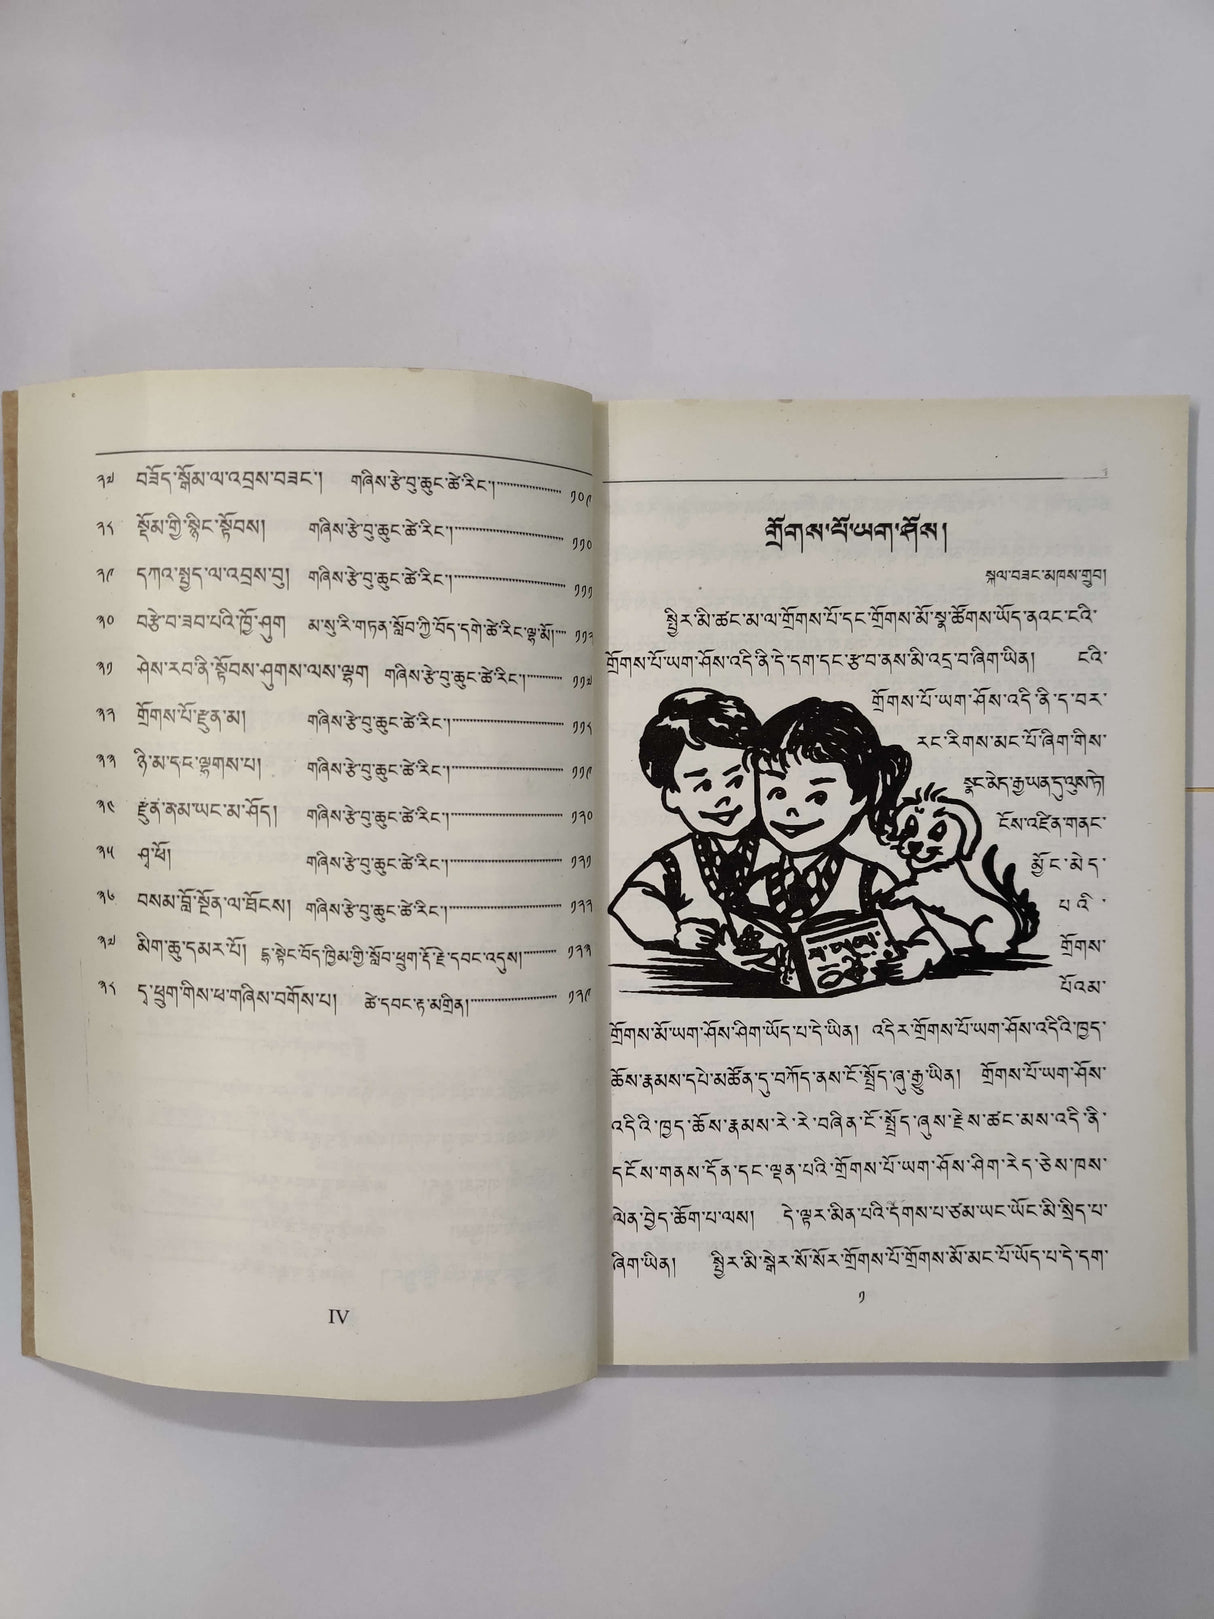 ༢༧ བཟོད་སྒོམ་ལ་འབྲས་བཟང་། གཞིས་རྩེ་བུ་ཆུང་ཚེ་རིང་། ༡༠༩
༢༨ སྡོམ་གྱི་སྙིང་སྟོབས། གཞིས་རྩེ་བུ་ཆུང་ཚེ་རིང་། ༡༡༠
༢༩ དཀའ་སྤྱད་ལ་འབྲས་བུ། གཞིས་རྩེ་བུ་ཆུང་ཚེ་རིང་། ༡༡༡
༣༠ བརྩེ་བ་ཟབ་པའི་ཁྱོ་ཤུག མ་སུ་རི་གཏན་སློབ་ཀྱི་བོད་དགེ་ཚེ་རིང་ལྷ་མོ། ༡༡༢
༣༡ ཤེས་རབ་ནི་སྟོབས་ཤུགས་ལས་ལྷག གཞིས་རྩེ་བུ་ཆུང་ཚེ་རིང་། ༡༡༧
༣༢ གྲོགས་པོ་རྫུན་མ། གཞིས་རྩེ་བུ་ཆུང་ཚེ་རིང་། ༡༡༨
༣༣ ཉི་མ་དང་ལྷགས་པ། གཞིས་རྩེ་བུ་ཆུང་ཚེ་རིང་། ༡༡༩
༣༤ རྫུན་ནམ་ཡང་མ་ཤོད། གཞིས་རྩེ་བུ་ཆུང་ཚེ་རིང་། ༡༢༠
༣༥ གཞིས་རྩེ་བུ་ཆུང་ཚེ་རིང་། ༡༢༡
༣༦ བསམ་བློ་སྔོན་ལ་ཐོངས། གཞིས་རྩེ་བུ་ཆུང་ཚེ་རིང་། ༡༢༢
༣༧ མིག་ཆུ་དམར་པོ། སྟེང་བོད་ཁྱིམ་གྱི་སློབ་ཕྲུག་རྡོ་རྗེ་དབང་འདུས། ༡༢༣
༣༨ དྭ་ཕྲུག་གིས་ཕ་གཞིས་བགོས་པ། ཚེ་དབང་རྟ་མགྲིན། ༡༢༩
IV
གྲོགས་པོ་ཡག་ཤོས།
སྐལ་བཟང་མཁས་གྲུབ།
སྤྱིར་མི་ཚང་མ་ལ་གྲོགས་པོ་དང་གྲོགས་མོ་སྣ་ཚོགས་ཡོད་ནའང་ངའི་
གྲོགས་པོ་ཡག་ཤོས་འདི་ནི་དེ་དག་དང་རྩ་བ་ནས་མི་འདྲ་བ་ཞིག་ཡིན། ངའི་
གྲོགས་པོ་ཡག་ཤོས་འདི་ནི་ད་བར་
རང་རིགས་མང་པོ་ཞིག་གིས་
སྣང་མེད་རྒྱ་ཡན་དུ་ལུས་ཏེ།
ངོས་འཛིན་གནང་
མྱོང་མེད་
པའི་
གྲོགས་
པོའམ་
གྲོགས་མོ་ཡག་ཤོས་ཤིག་ཡོད་པ་དེ་ཡིན། འདིར་གྲོགས་པོ་ཡག་ཤོས་འདིའི་ཁྱད་
ཆོས་རྣམས་དཔེ་མཚོན་དུ་བཀོད་ནས་ངོ་སྤྲོད་ཞུ་རྒྱུ་ཡིན། གྲོགས་པོ་ཡག་ཤོས་
འདིའི་ཁྱད་ཆོས་རྣམས་རེ་རེ་བཞིན་ངོ་སྤྲོད་ཞུས་རྗེས་ཚང་མས་འདི་ནི་
དངོས་གནས་དོན་དང་ལྡན་པའི་གྲོགས་པོ་ཡག་ཤོས་ཤིག་རེད་ཅེས་ཁས་
ལེན་བྱེད་ཆོག་པ་ལས། དེ་ལྟར་མིན་པའི་དོགས་པ་ཙམ་ཡང་ཡོང་མི་སྲིད་པ་
ཞིག་ཡིན། སྤྱིར་མི་སྒེར་སོ་སོར་གྲོགས་པོ་གྲོགས་མོ་མང་པོ་ཡོད་པ་དེ་དག་
༡